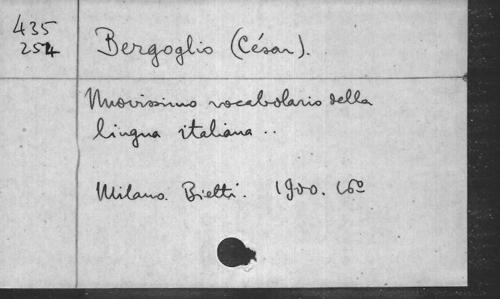 435
254
Bergoglio (César).
Nuovissimo vocabolario della
lingua italiana ..
Milano. Bietti. 1900. 16º